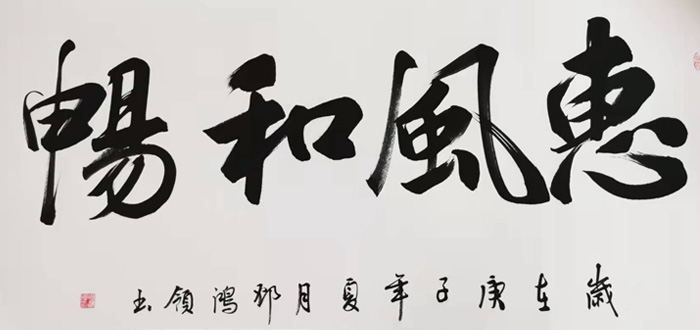 惠風和暢
歲在庚子年夏月鄧鴻領书